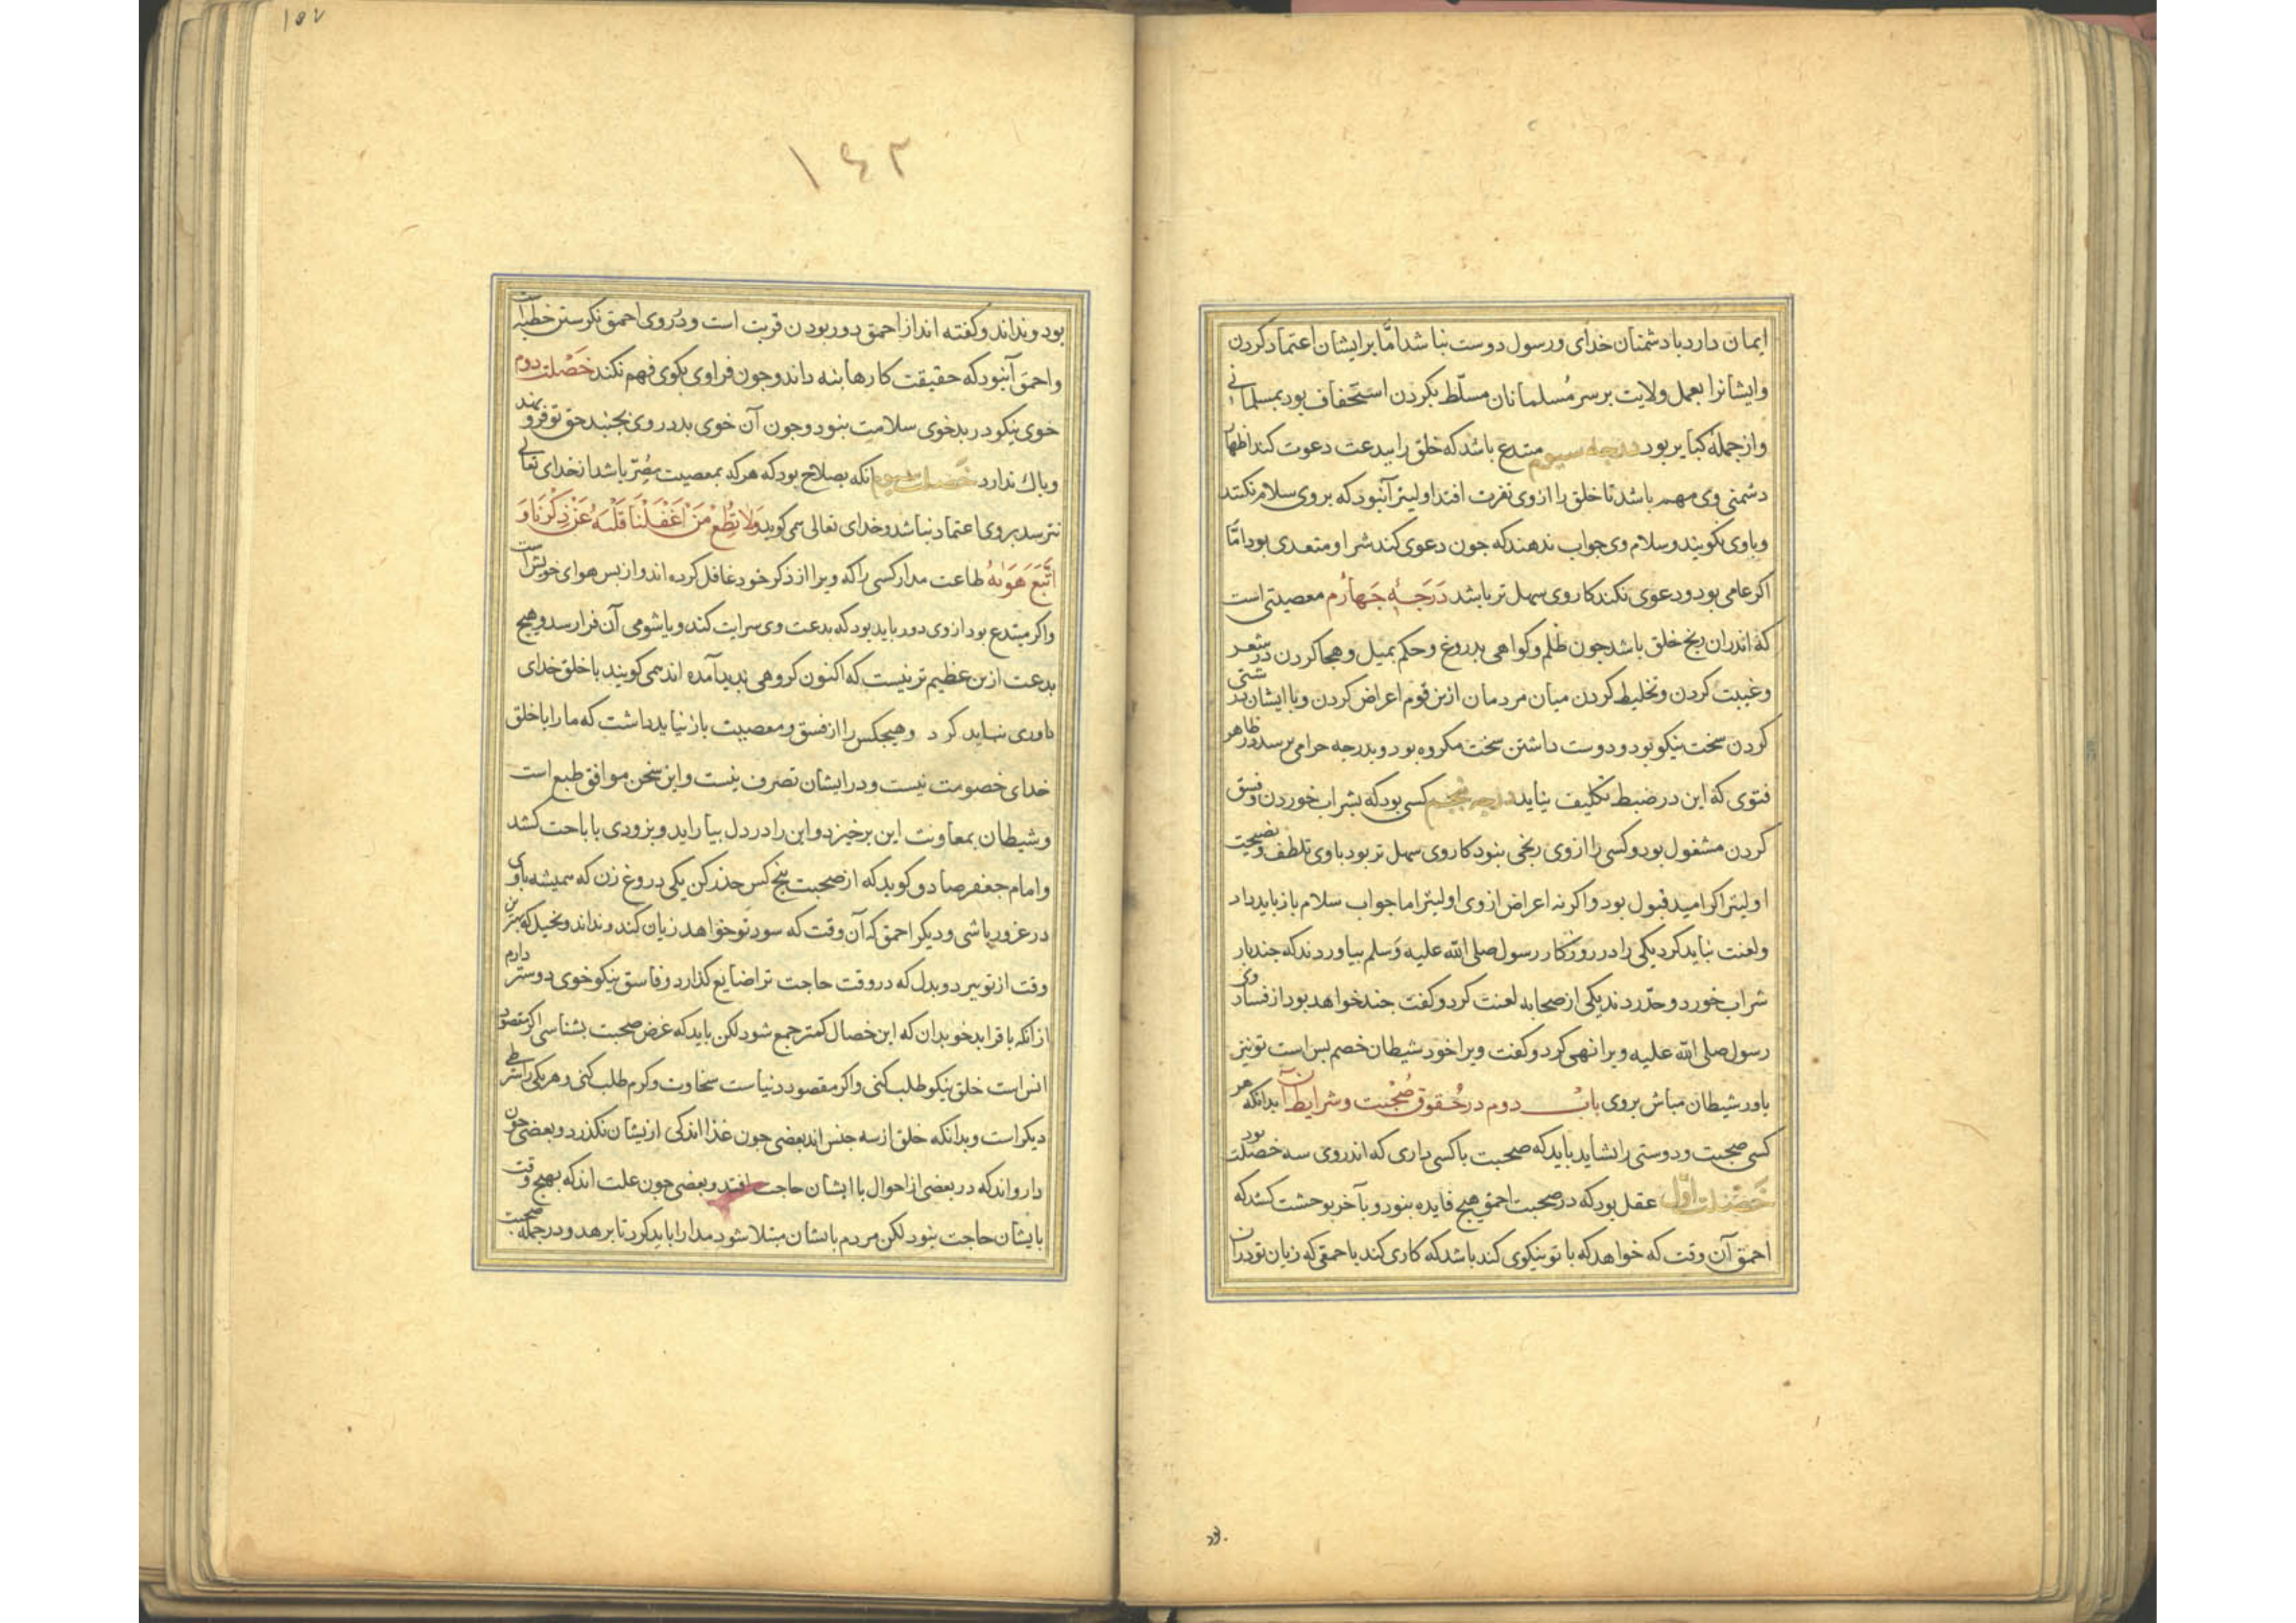 ایمان دارد با دشمنان خدای و رسول دوست نباشد اما بر ایشان اعتماد کردن
و ایشانرا بعمل ولایت بر سر مسلمانان مسلّط بکردن استخفاف بود بمسلمانی
و از جملهٔ کبایر بود درجه سیوم مبتدع باشد که خلق را ببدعت دعوت کند اظهار
دشمنی وی مهم باشد تا خلق را از وی نفرت افتد اولیتر آنبود که بر وی سلام نکنند
و با وی نکویند و سلام وی جواب ندهند که جون دعوی کند شر او متعدی بود امّا
اکر عامی بود و دعوی نکند کار وی سهل تر باشد درجهٔ جهارم معصیتی است
که اندران رنج خلق باشد جون ظلم و کواهی بدروغ و حکم بمیل و هجا کردن در شعر
و غیبت کردن و تخلیط کردن میان مردمان ازین قوم اعراض کردن و با ایشان درشتی
کردن سخت نیکو بود و دوست داشتن سخت مکروه بود و بدرجه حرامی نرسد در ظاهر
فتوی که این در ضبط تکلیف نیاید درجه پنجم کسی بود که بشراب خوردن و فسق
کردن مشغول بود و کسی را از وی رنجی نبود کار وی سهل تر بود با وی تلطف و نصیحت
اولیتر اکر امید قبول بود و اکر نه اعراض از وی اولیتر اما جواب سلام باز باید داد
و لعنت نباید کرد یکی را در روزکار رسول صلی الله علیه و سلم بیاوردند که جند بار
شراب خورد و حدّ زدند یکی از صحابه لعنت کرد و کفت جند خواهد بود از فساد وی
رسول صلی الله علیه ویرا نهی کرد و کفت ویرا خود شیطان خصم بس است تو نیز
یاور شیطان مباش بر وی باب دوم در حقوق صحبت و شرایط آن بدانکه هر
کسی صحبت و دوستی را نشاید باید که صحبت با کسی داری که اندر وی سه خصلت بود
خصلت اوّل عقل بود که در صحبت احمق هیج فایده نبود و بآخر بوحشت کشد که
احمق آن وقت که خواهد که با تو نیکوی کند باشد که کاری کند باحمقی که زیان تو دران
بود
۱۴۳
بود و نداند و کفته اند از احمق دور بودن قربت است و در روی احمق نکرستن خطیئه است
و احمق آنبود که حقیقت کارها بنه داند و جون فرا وی بکوی فهم نکند خصلت دوم
خوی نیکو در بدخوی سلامت نبود و جون آن خوی بد در وی بجنبد حق تو فرو نهد
و باک ندارد خصلت سیوم آنکه بصلاح بود که هر که بمعصیت مصرّ باشد از خدای تعالی
نترسد بر وی اعتماد نباشد و خدای تعالی می کوید وَلا تُطِعْ مَنْ اَغْفَلْنا قَلْبَهُ عَنْ ذِکْرِنا وَ
اتَّبَعَ هَوٰیهُ طاعت مدار کسی را که ویرا از ذکر خود غافل کرده اند و از بس هوای خویش است
و اکر مبتدع بود از وی دور باید بود که بدعت وی سرایت کند و یا شومی آن فرا رسد و هیج
بدعت ازین عظیم تر نیست که اکنون کروهی بدید آمده اند می کویند با خلق خدای
داوری نباید کرد و هیجکس را از فسق و معصیت باز نباید داشت که ما را با خلق
خدای خصومت نیست و در ایشان تصرف نیست و این سخن موافق طبع است
و شیطان بمعاونت این برخیزد و این را در دل بیاراید و بزودی با باحت کشد
و امام جعفر صادق کوید که از صحبت پنج کس حذر کن یکی دروغ زن که همیشه با وی
در غرور باشی و دیکر احمق که آن وقت که سود تو خواهد زیان کند و نداند و بخیل که بهترین
وقت از تو ببرد و بددل که در وقت حاجت ترا ضایع کذارد و فاسق نیکو خوی دوستر دارم
از آنکه با قرا بدخو بدان که این خصال کمتر جمع شود لکن باید که غرض صحبت بشناسی اکر مقصود
انس است خلق نیکو طلب کنی و اکر مقصود دنیاست سخاوت و کرم طلب کنی و هر یکی را شرطی
دیکر است و بدانکه خلق از سه جنس اند بعضی جون غذا اند کی ازیشان نکذرد و بعضی جون
دارو اند که در بعضی از احوال با ایشان حاجت افتد و بعضی جون علت اند که بهیج وقت
بایشان حاجت نبود لکن مردم بایشان مبتلا شود مدارا باید کرد تا برهد و در جمله صحبت